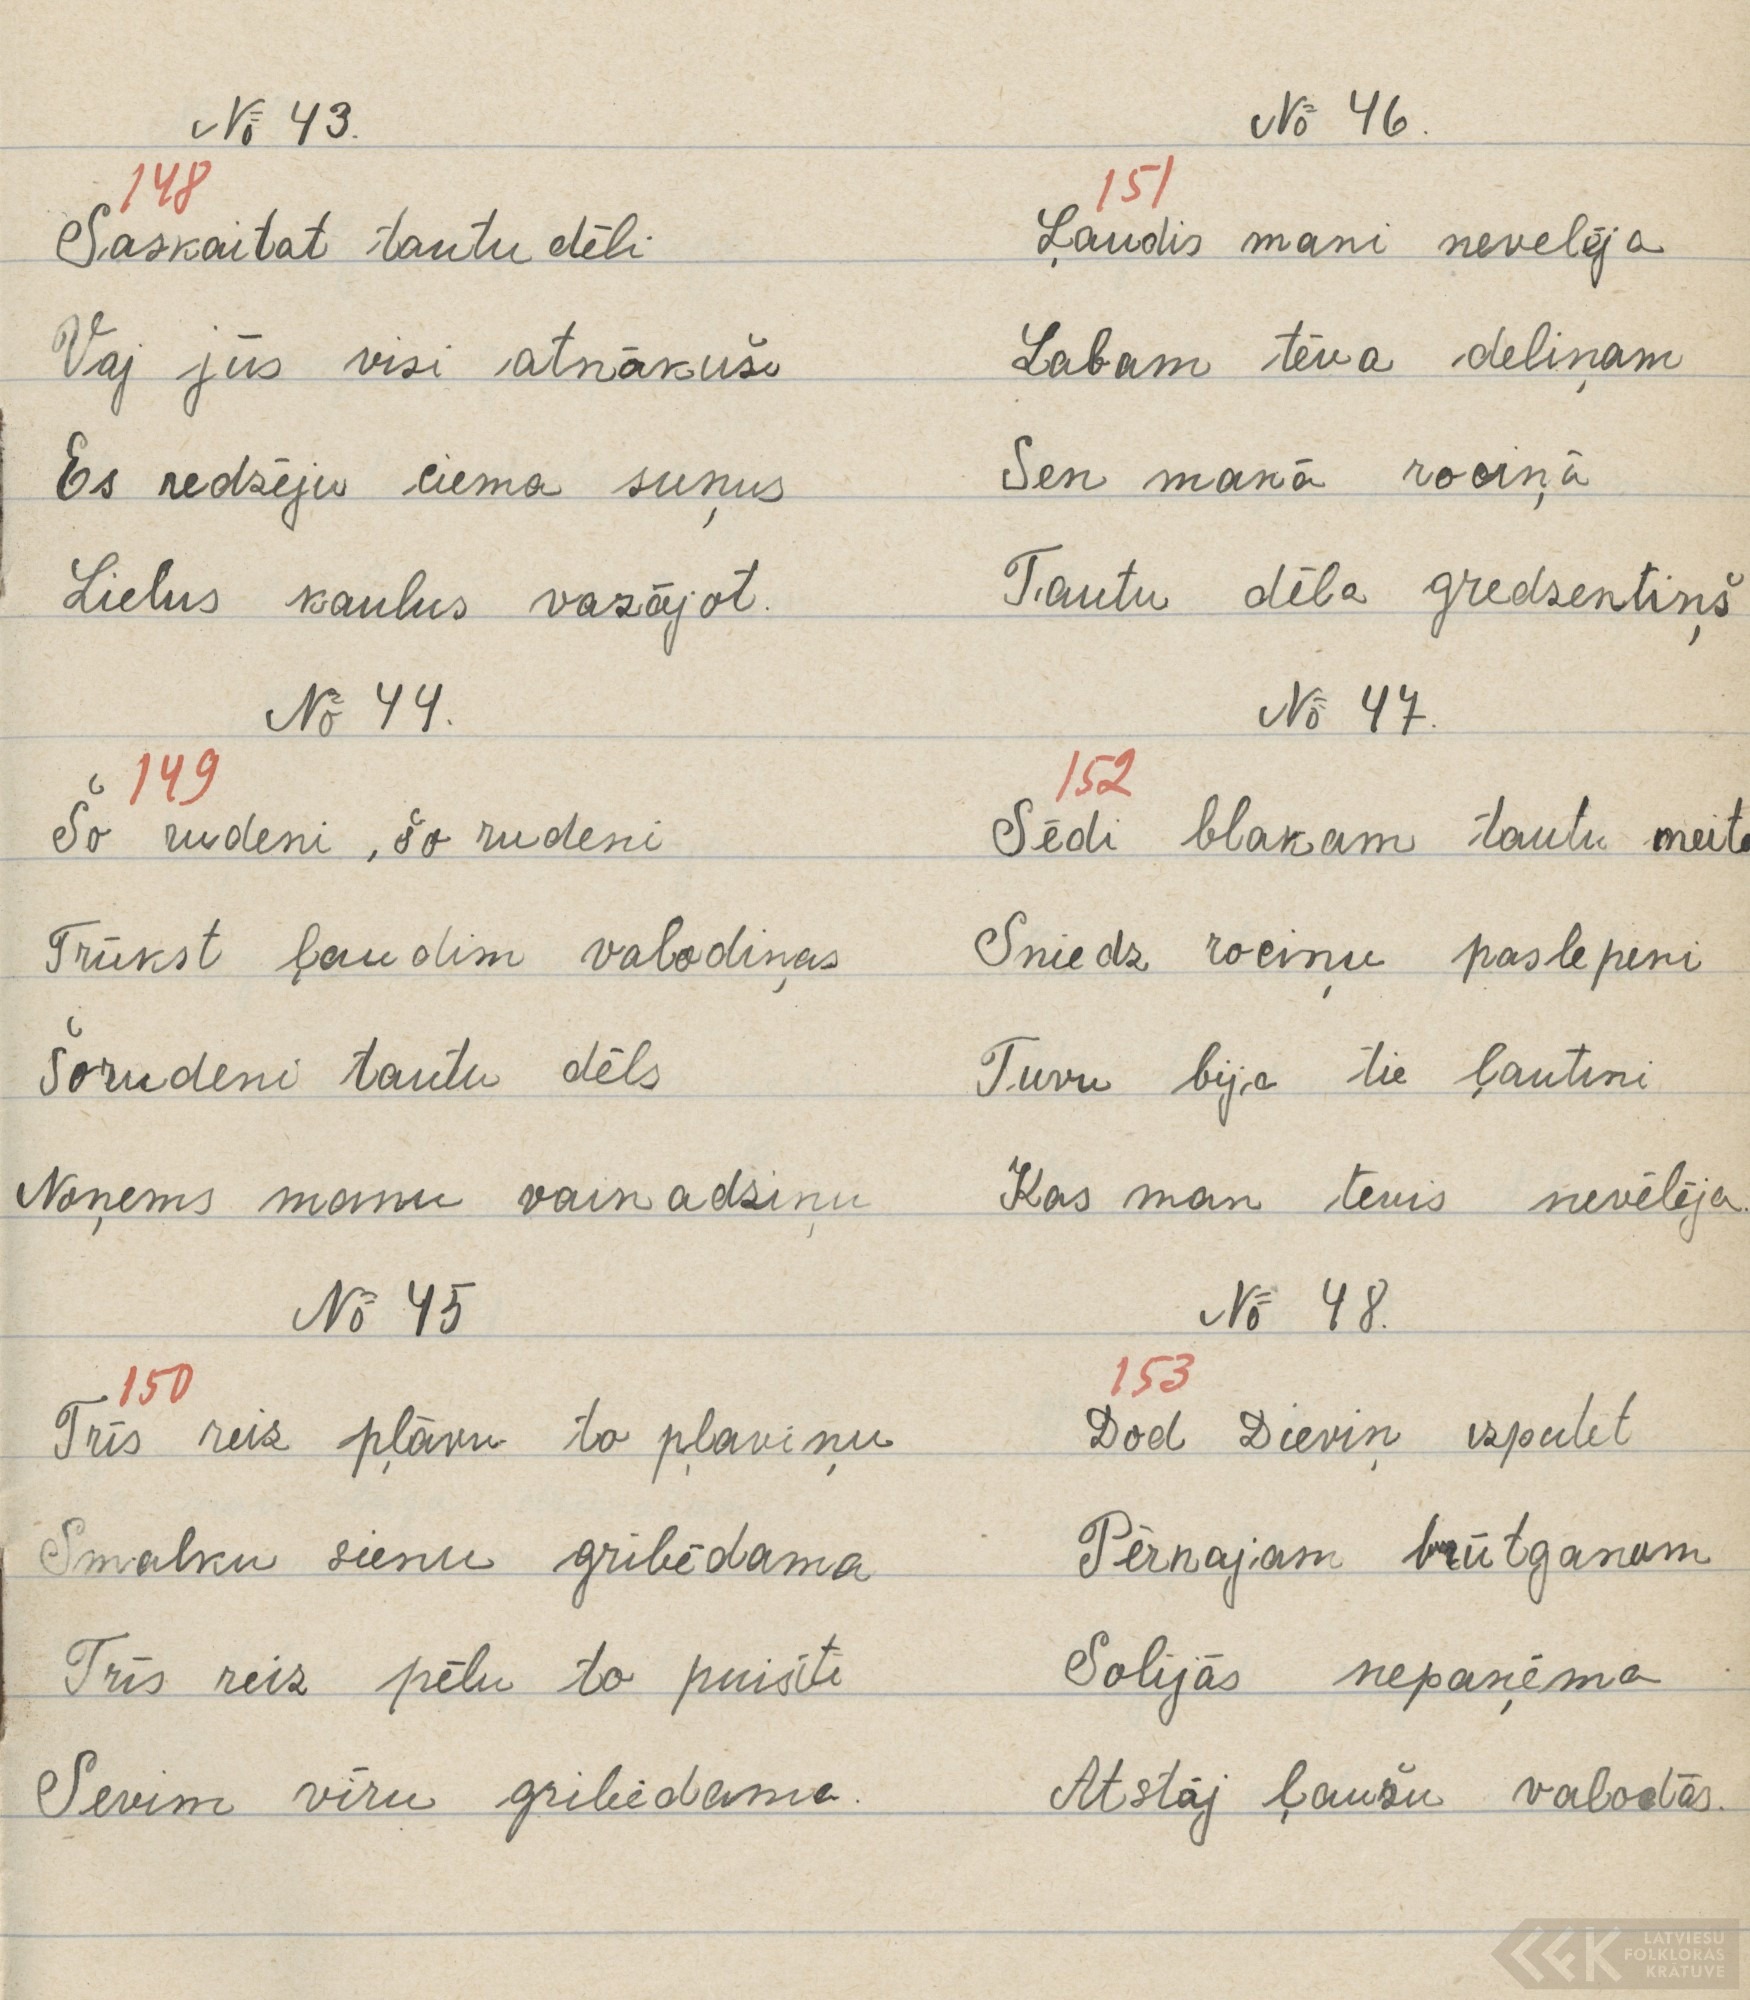 № 43.
148
Saskaitat tautu dēli
Vaj jūs visi atnākuši
Es redzēju ciema suņus
Lielus kaulus vazājot.
№ 44.
149
Šo rudeni, šo rudeni
Trūkst ļaudim valodiņas
Šorudeni tautu dēls
Noņems manu vainadziņu
№ 45
150
Trīs reiz pļāvu to pļaviņu
Smalku sienu gribēdama
Trīs reiz pēlu to puisīti
Sevim vīru gribēdama.
№ 46.
151
Ļaudis mani nevelēja
Labam tēva deliņam
Sen manā rociņā
Tautu dēla gredzentiņš
№ 47.
152
Sēdi blakam tautu meita
Sniedz rociņu paslepeni
Tuvu bija tie ļautini
Kas man tevis nevēlēja.
№ 48.
153
Dod Dieviņ izputet
Pērnajam brūtganam
Solijās nepaņēma
Atstāj ļaužu valodās.
LATVIEŠU
FOLKLORAS
KRĀTUVE